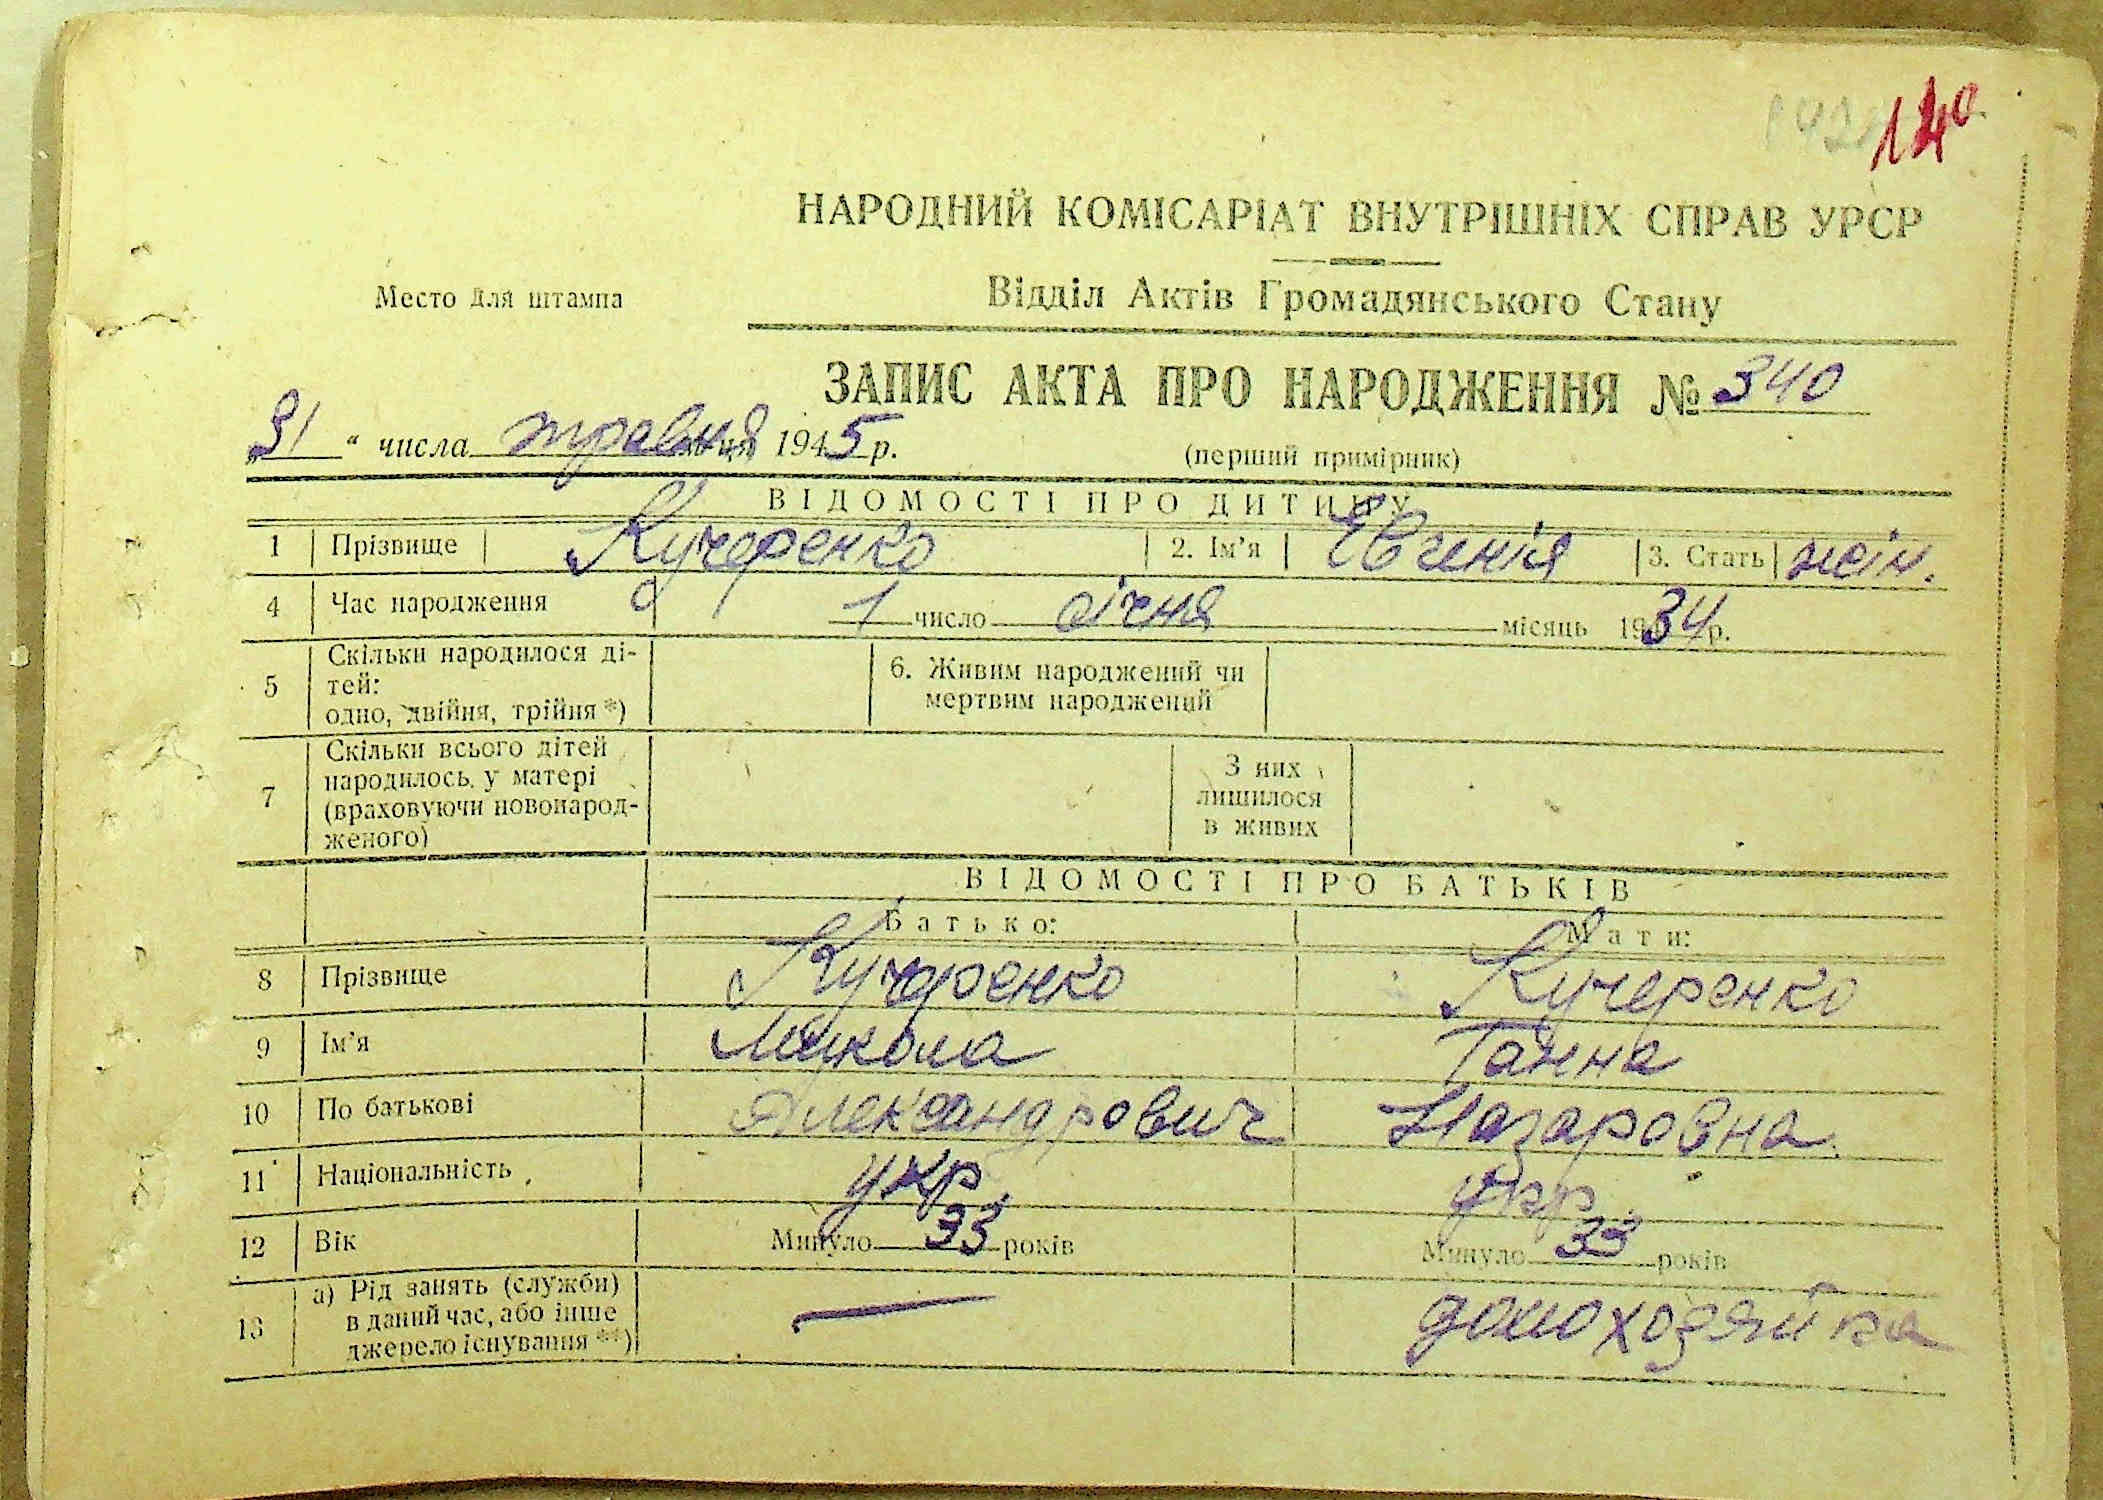 140
НАРОДНИЙ КОМІСАРІАТ ВНУТРІШНІХ СПРАВ УРСР
Место для штампа
Відділ Актів Громадянського Стану
ЗАПИС АКТА ПРО НАРОДЖЕННЯ № 340
„31“ числа травня 1945 р.
(перший примірник)
ВІДОМОСТІ ПРО ДИТИНУ
1 Прізвище Кучеренко 2. Ім'я Евгенія 3. Стать жін.
4 Час народження 1 число січня місяць 1934 р.
5 Скільки народилося ді-
тей:
одно, двійня, трійня *)
6. Живим народжений чи
мертвим народжений
7 Скільки всього дітей
народилось у матері
(враховуючи новонарод-
женого)
З них
лишилося
в живих
ВІДОМОСТІ ПРО БАТЬКІВ
Батько: Мати:
8 Прізвище Кучеренко Кучеренко
9 Ім'я Микола Ганна
10 По батькові Александрович Назаровна
11 Національність укр укр
12 Вік Минуло 33 років Минуло 33 років
13 а) Рід занять (служби)
в даний час, або інше
джерело існування **)
— домохозяйка